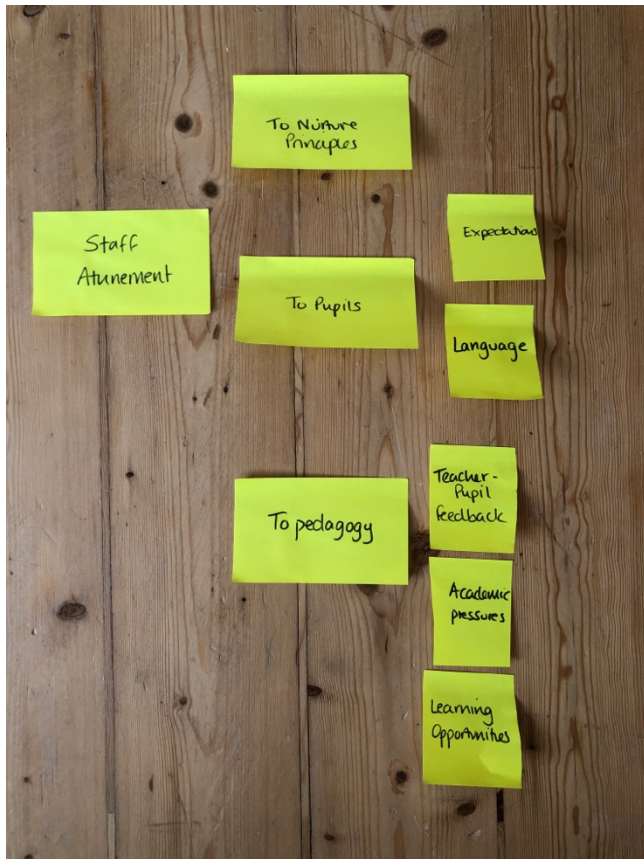 To Nurture
Principles
Staff
Atunement
To Pupils
Expectations
Language
To pedagogy
Teacher-
Pupil
feedback
Academic
pressures
Learning
Opportunities